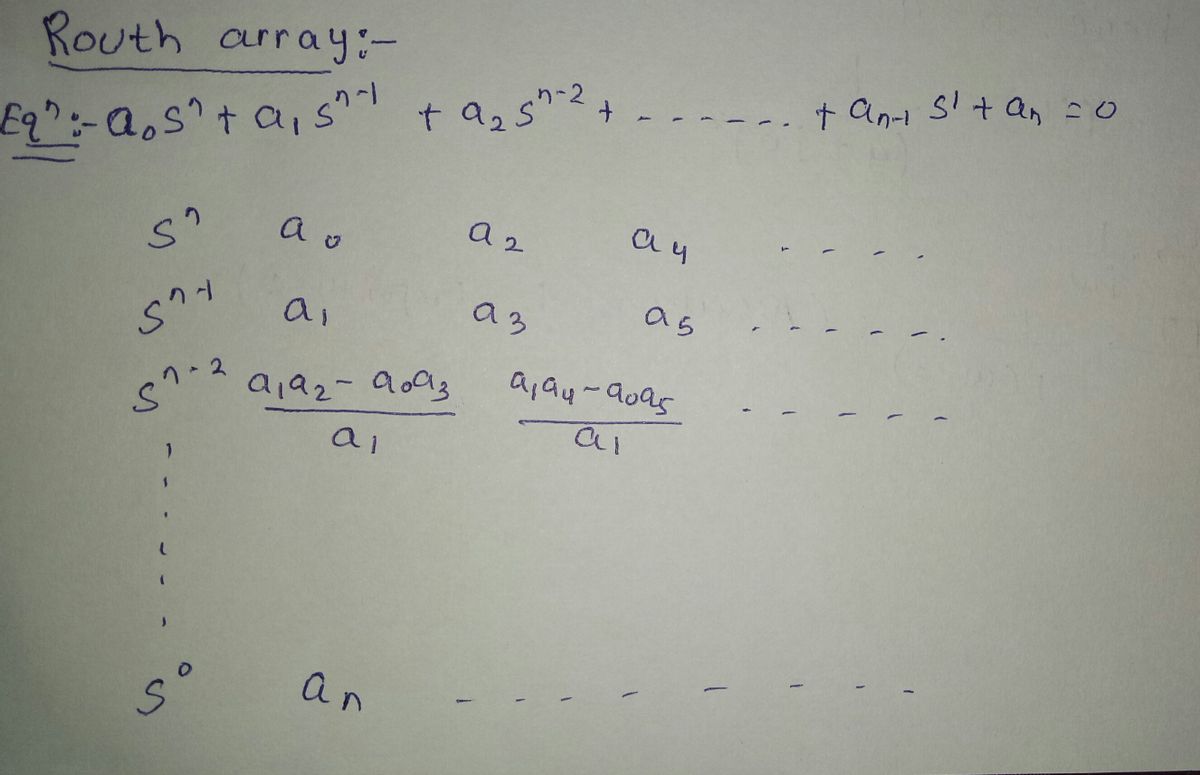 Routh array:-
Eqⁿ:- a₀sⁿ + a₁sⁿ⁻¹ + a₂sⁿ⁻² + ------- + aₙ₋₁ s¹ + aₙ = 0
sⁿ a₀ a₂ a₄ ----
sⁿ⁻¹ a₁ a₃ a₅ ------
sⁿ⁻² (a₁a₂ - a₀a₃)/a₁ (a₁a₄ - a₀a₅)/a₁ -----
s⁰ aₙ --------